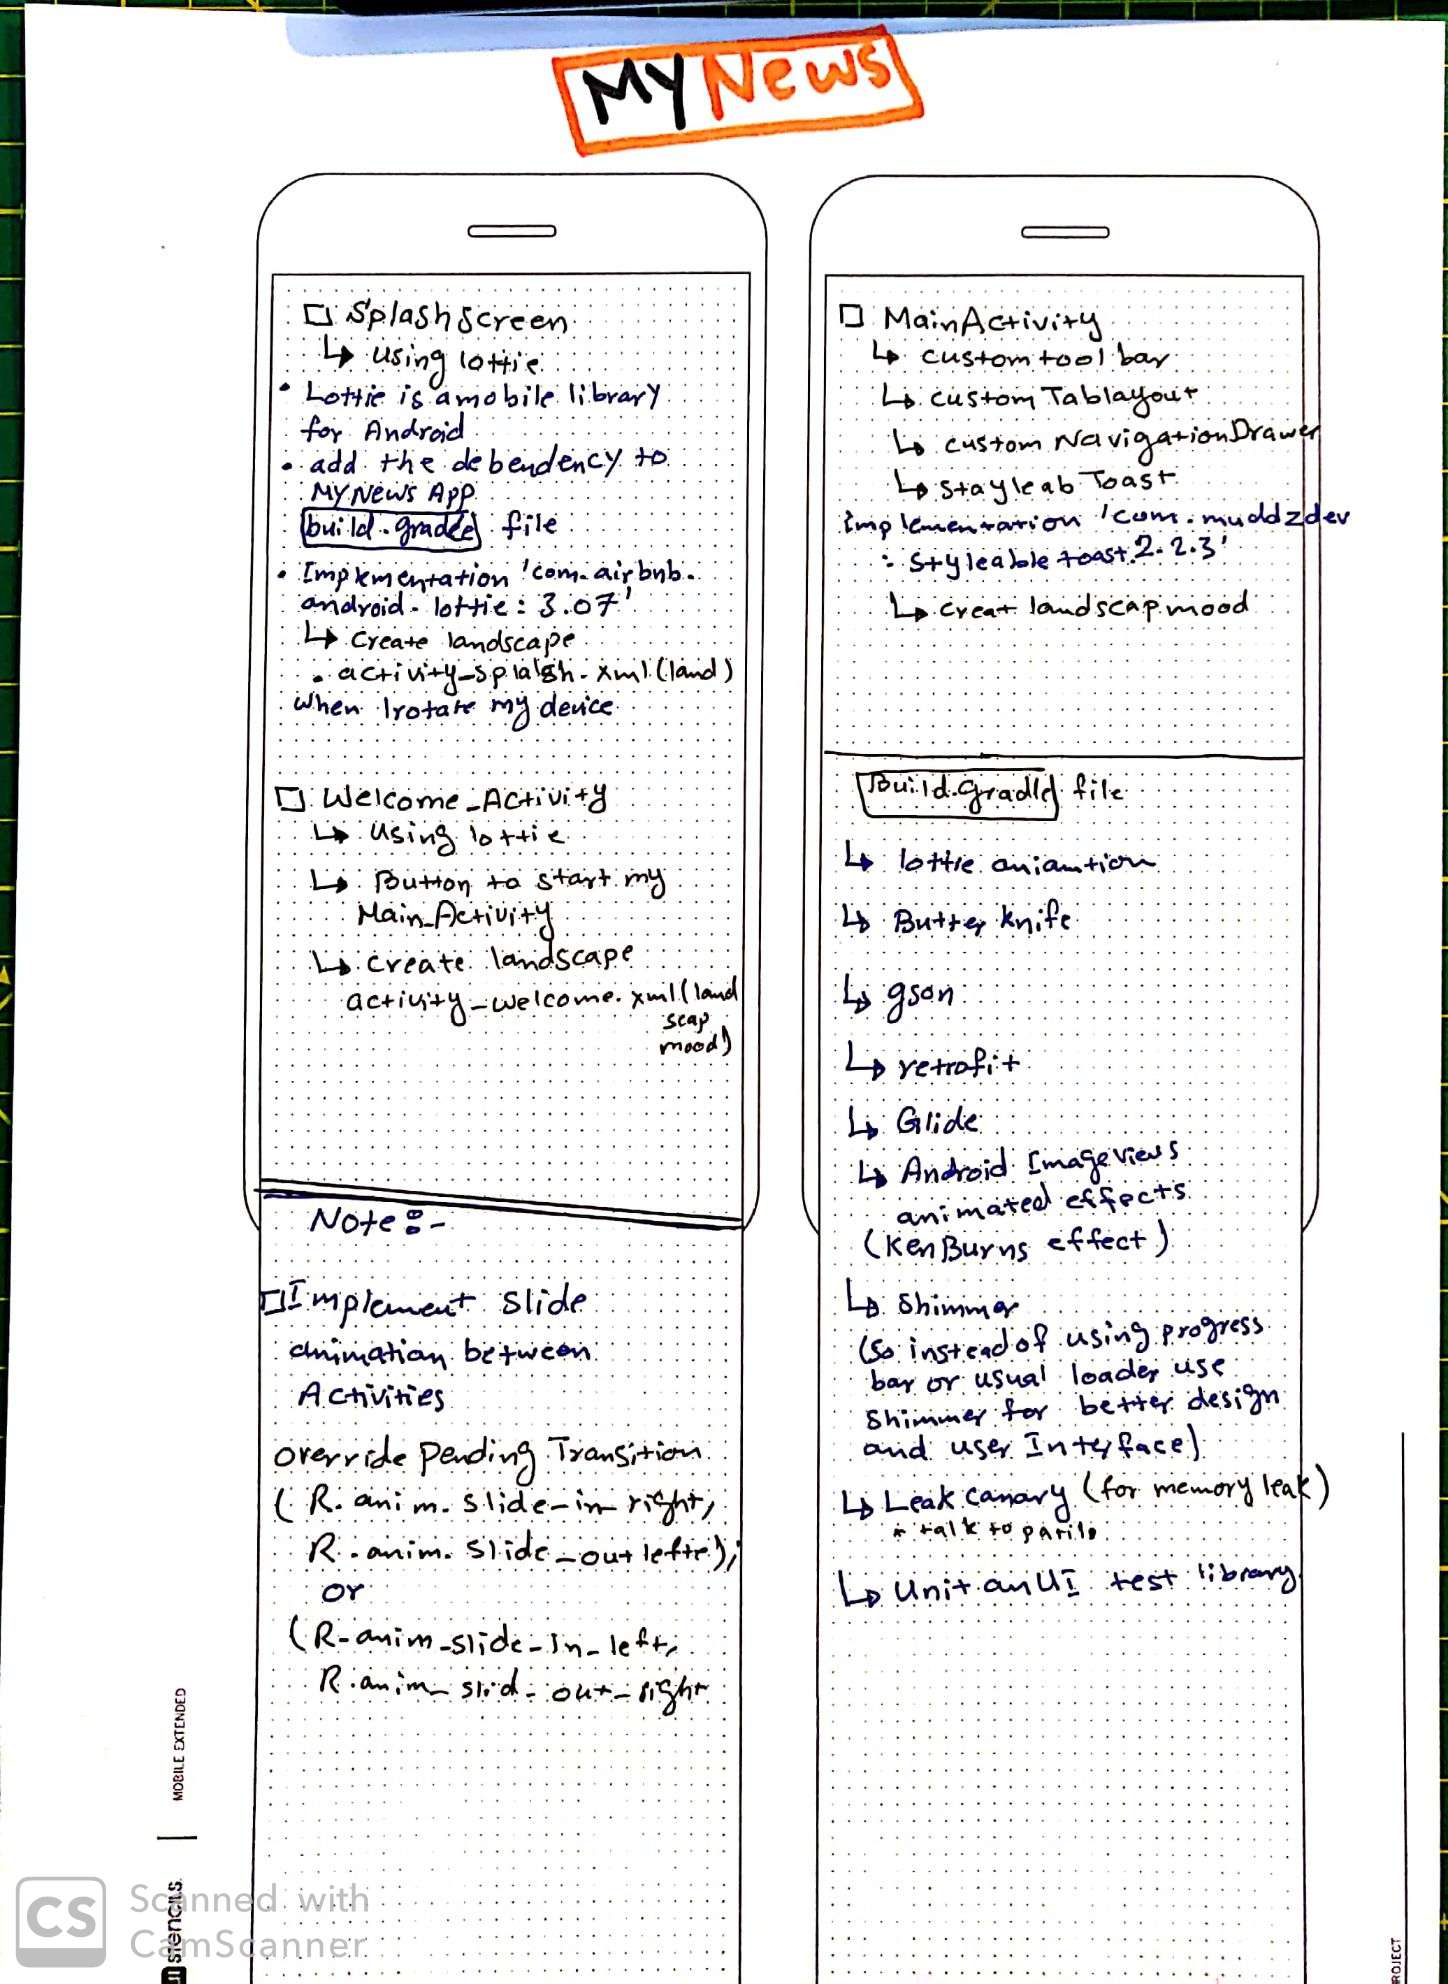 MY News
□ Splash Screen
↳ using lottie
• Lottie is a mobile library
for Android
• add the debendency to
MY News App
build.gradle file
• Implementation 'com.airbnb.
android.lottie: 3.07'
↳ Create landscape
• activity_splalsh.xml (land)
when I rotate my device
□ Welcome_Activity
↳ Using lottie
↳ Button to start my
Main_Activity
↳ create landscape
activity_welcome.xml (land
scap
mood)
Note:-
□ Implement slide
animation between
Activities
override Pending Transition
( R. anim. slide-in right,
R. anim. slide_out lefte);
or
( R-anim_slide-in_left,
R.anim_ slid_out_right
□ MainActivity
↳ custom tool bar
↳ custom Tablayout
↳ custom NavigationDrawer
↳ stayleab Toast
Implementation 'com.muddzdev
: styleable toast: 2.2.3'
↳ creat landscap mood
Build.Gradle file
↳ lottie aniamtion
↳ Butter knife
↳ gson
↳ retrofit
↳ Glide
↳ Android Image views
animated effects
(Ken Burns effect)
↳ Shimmer
(so instead of using progress
bar or usual loader use
shimmer for better design
and user Interface)
↳ Leak canary (for memory leak)
* talk to
↳ Unit an UI test library
MOBILE EXTENDED
stencils
PROJECT
CS
Scanned with
CamScanner